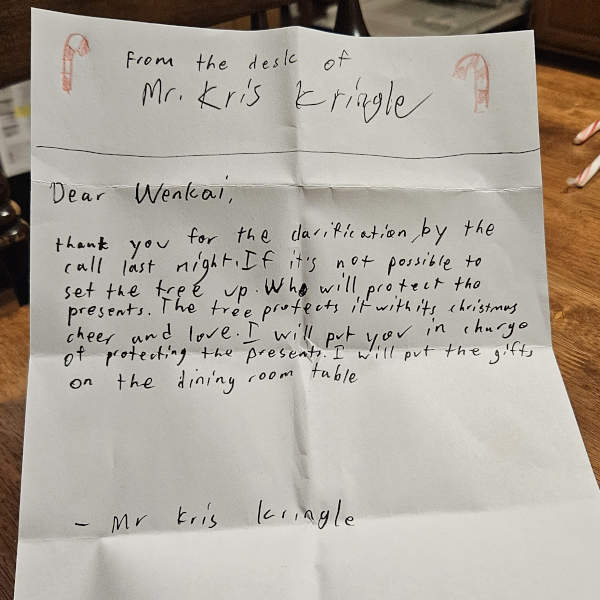 From the desk of
Mr. Kris Kringle
Dear Wenkai,
thank you for the clarification, by the
call last night. If it's not possible to
set the tree up. Who will protect the
presents. The tree protects it with its christmas
cheer and love. I will put you in charge
of protecting the presents. I will put the gifts
on the dining room table
- Mr Kris Kringle